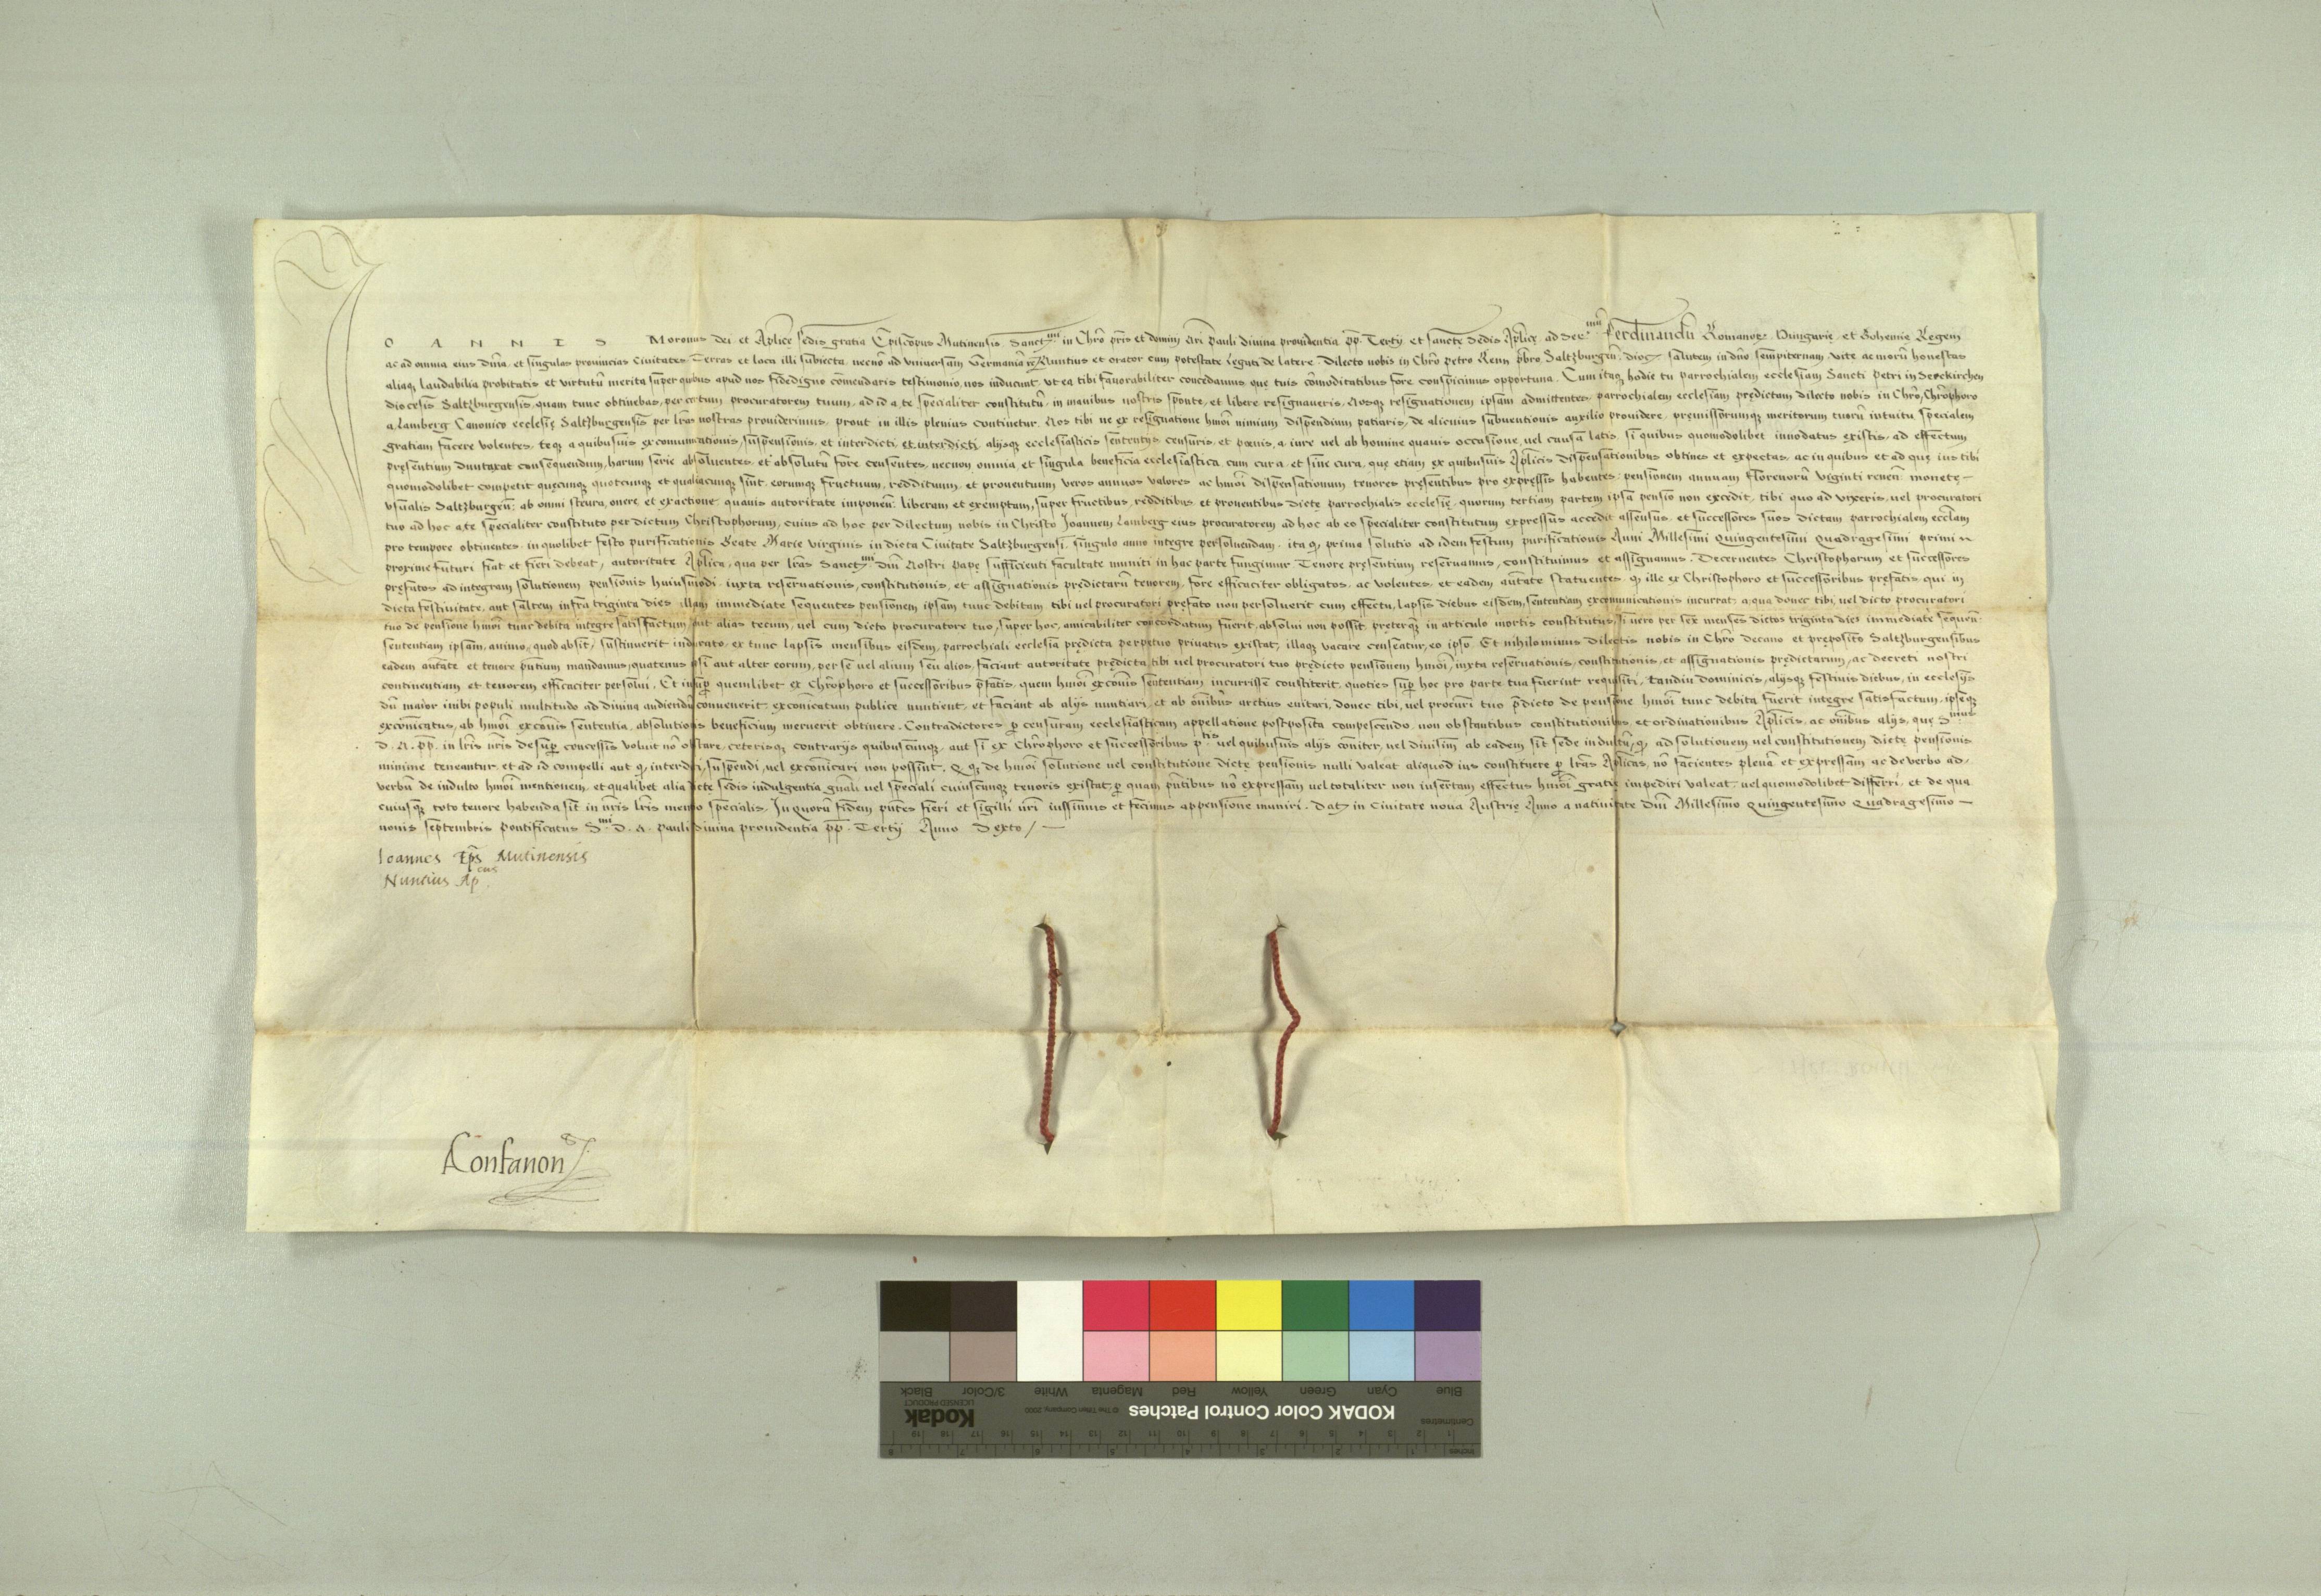 IOANNIS Moronus dei et Aplicę sedis gratia Episcopus Mutinensis. Sanctmi in Chro pris et dominj Nri Pauli divina providentia pp. Tertij et sanctę Sedis Aplicę, ad Sermū Ferdinandū Romanor. Hungarię et Bohemię Regem
ac ad omnia eius dnia, et singulas provincias Civitates Terras et loca illi subiecta necnō ad vniuersam Germaniā Nuntius et orator cum potestate legati de latere. Dilecto nobis in Chrō petro Renn pbro Saltzburgeñ. dioc. salutem in dño sempiternam. Vitę ac morū honestas
aliaq laudabilia probitatis et virtutū merita super quibus apud nos fidedigno comendaris testimonio, nos inducunt, vt ea tibi fauorabiliter concedamus que tuis cōmoditatibus fore conspicimus opportuna. Cum itaq hodie tu parrochialem ecclesiam Sancti Petri in Seekirchen
diocesis Saltzburgensis, quam tunc obtinebas, per certum procuratorem tuum, ad id a te specialiter constitutū, in manibus nostris sponte, et libere resignaueris. Nosq resignationem ipsam admittentes, parrochialem ecclesiam prędictam dilecto nobis in Chrō, Chrōphoro
a Lamberg Canonico ecclesię Saltzburgensis per lras nostras prouiderimus, prout in illis plenius continetur. Nos tibi ne ex resignatione hmōi nimium dispendium patiaris, de alicuius subuentionis auxilio prouidere, pręmissorumq meritorum tuorū intuitu, specialem
gratiam facere volentes, teq a quibusuis excomunicationis, suspensionis, et interdicti, et interdicti, alijsq ecclesiasticis sententijs censuris, et pęnis, a iure uel ab homine quauis occasione, uel causa latis, si quibus quomodolibet innodatus existis, ad effectum
pręsentium duntaxat consequendum, harum serie absoluentes, et absolutū fore censentes, necnon omnia, et singula beneficia ecclesiastica cum cura, et sine cura, que etiam ex quibusuis Aplicis dispensationibus obtines et expectas, ac in quibus et ad quę ius tibi
quomodolibet competit quęcunq quotcunq et qualiacunq sint, eorumq fructuum, reddituum, et prouentuum veros annuos valores ac hmōi dispensationum tenores pręsentibus pro expressis habentes, pensionem annuam florenorū viginti reneñ. monetę
vsualis Saltzburgeñ: ab omni steura, onere, et exactione, quauis autoritate imponeñ: liberam et exemptam, super fructibus, redditibus et prouentibus dictę parrochialis ecclesię, quorum tertiam partem ipsa pensio non excedit, tibi quo ad vixeris, uel procuratori
tuo ad hoc a te specialiter constituto per dictum Christophorum, cuius ad hoc per dilectum nobis in Christo Joannem Lamberg eius procuratorem ad hoc ab eo specialiter constitutum expressus accedit assensus, et successores suos dictam parrochialem ecclam
pro tempore obtinentes, in quolibet festo purificationis Beate Marie virginis in dicta Civitate Saltzburgensi, singulo anno integre persoluendam, ita q, prima solutio ad idem festum purificationis Anni Millesimi Quingentesimi Quadragesimi primi
proxime futuri fiat et fieri debeat, autoritate Aplica, qua per lras Sanctmi dni Nostri Papę sufficienti facultate muniti in hac parte fungimur. Tenore pręsentium reseruamus, constituimus et assignamus. Decernentes Christophorum et successores
pręfatos ad integram solutionem pensionis huiusmodi, iuxta reseruationis, constitutionis, et assignationis predictarū tenorem, fore efficaciter obligatos, ac volentes, et eadem autate statuentes, q ille ex Christophoro et successoribus pręfatis, qui in
dicta festiuitate, aut saltem infra triginta dies illam immediate sequentes pensionem ipsam tunc debitam tibi uel procuratori prefato non persoluerit cum effectu, lapsis diebus eisdem, sententiam excomunicationis incurrat, a qua donec tibi, uel dicto procuratori
tuo de pensione hmōi tunc debita integre satisfactum, aut alias tecum, uel cum dicto procuratore tuo, super hoc, amicabiliter concordatum fuerit, absolui non possit, pręterq in articulo mortis constitutus, si uero per sex menses dictos triginta dies immediate sequeñ:
sententiam ipsam, animo, quod absit, sustinuerit indurato, ex tunc lapsis mensibus eisdem, parrochiali ecclesia predicta perpetuo priuatus existat, illaq vacare censeatur, eo ipso. Et nihilominus dilectis nobis in Chrō decano et pręposito Saltzburgensibus
eadem autate et tenore pntium mandamus, quatenus ipsi aut alter eorum, per se uel alium seu alios, faciant autoritate prędicta, tibi uel procuratori tuo prędicto pensionem hmōi, iuxta reseruationis, constitutionis, et assignationis prędictarum, ac decreti nostri
continentiam et tenorem efficaciter persolui, Et insup quemlibet ex Chrōphoro et successoribus pfatis, quem hmōi excōnis sententiam incurrisse constiterit, quoties sup hoc pro parte tua fuerint requisiti, tandiu dominicis, alijsq festiuis diebus, in ecclesijs
dū maior inibi populi multitudo ad diuina audiendū conuenerit, excōnicatum publice nuntient, et faciant ab alijs nuntiari, et ab omibus arctius euitari, donec tibi, uel procuri tuo pdicto de pensione hmōi tunc debita fuerit integre satisfactum, ipseq
excōnicatus, ab hmōi excōnis sententia, absolutionis beneficium meruerit obtinere. Contradictores p censuram ecclesiasticam appellatione postposita compescendo, non obstantibus constitutionibus, et ordinationibus Aplicis, ac omibus alijs, quę Smus
D. N. pp. in lris nris desup concessis voluit nō obstare, ceterisq contrarijs quibuscunq, aut si ex Chrōphoro et successoribus ptis uel quibusuis alijs cōniter, uel diuisim ab eadem sit sede indultū, q, ad solutionem uel constitutionem dictę pensionis
minime teneantur, et ad id compelli aut q, interdici, suspendi, uel excōnicari non possint, Q q, de hmōi solutione uel constitutione dictę pensionis nulli valeat aliquod ius constituere p lras Aplicas, nō facientes plenā et expressam ac de verbo ad
verbū de indulto hmōi mentionem, et qualibet alia dictę sedis indulgentia gnali uel speciali cuiuscunq tenoris existat, p quam pntibus nō expressam uel totaliter non insertam effectus hmōi gratię impediri valeat, uel quomodolibet differri, et de qua
cuiusq toto tenore habenda sit in nris lris mentio specialis. In Quorū fidem pntes fieri et sigilli nri iussimus et fecimus appensione muniri. Dat. in Civitate noua Austrię Anno a natiuitate Dni Millesimo Quingentesimo Quadragesimo
nonis septembris pontificatus Smi D. N. Pauli diuina prouidentia pp. Tertij Anno Sexto
Ioannes Eps Mutinensis
Nuntius Apcus
Blue Cyan Green Yellow Red Magenta White 3/Color Black
KODAK Color Control Patches © The Tiffen Company, 2000 Kodak LICENSED PRODUCT
Centimetres 1 2 3 4 5 6 7 8 9 10 11 12 13 14 15 16 17 18 19
Inches 1 2 3 4 5 6 7 8